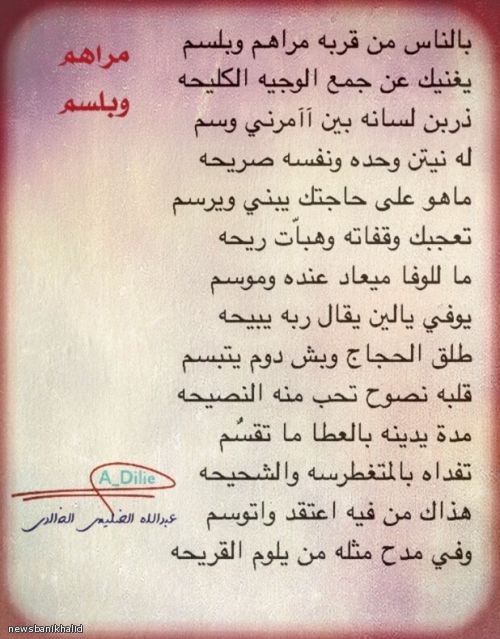 مراهم
وبلسم
بالناس من قربه مراهم وبلسم
يغنيك عن جمع الوجيه الكليحه
ذربن لسانه بين آآمرني وسم
له نيتن وحده ونفسه صريحه
ماهو على حاجتك يبني ويرسم
تعجبك وقفاته وهباّت ريحه
ما للوفا ميعاد عنده وموسم
يوفي يالين يقال ربه يبيحه
طلق الحجاج وبش دوم يتبسم
قلبه نصوح تحب منه النصيحه
مدة يدينه بالعطا ما تقسُم
تفداه بالمتغطرسه والشحيحه
هذاك من فيه اعتقد واتوسم
وفي مدح مثله من يلوم القريحه
A_Dilie
عبدالله الضليعي الخالدي
newsbanikhalid